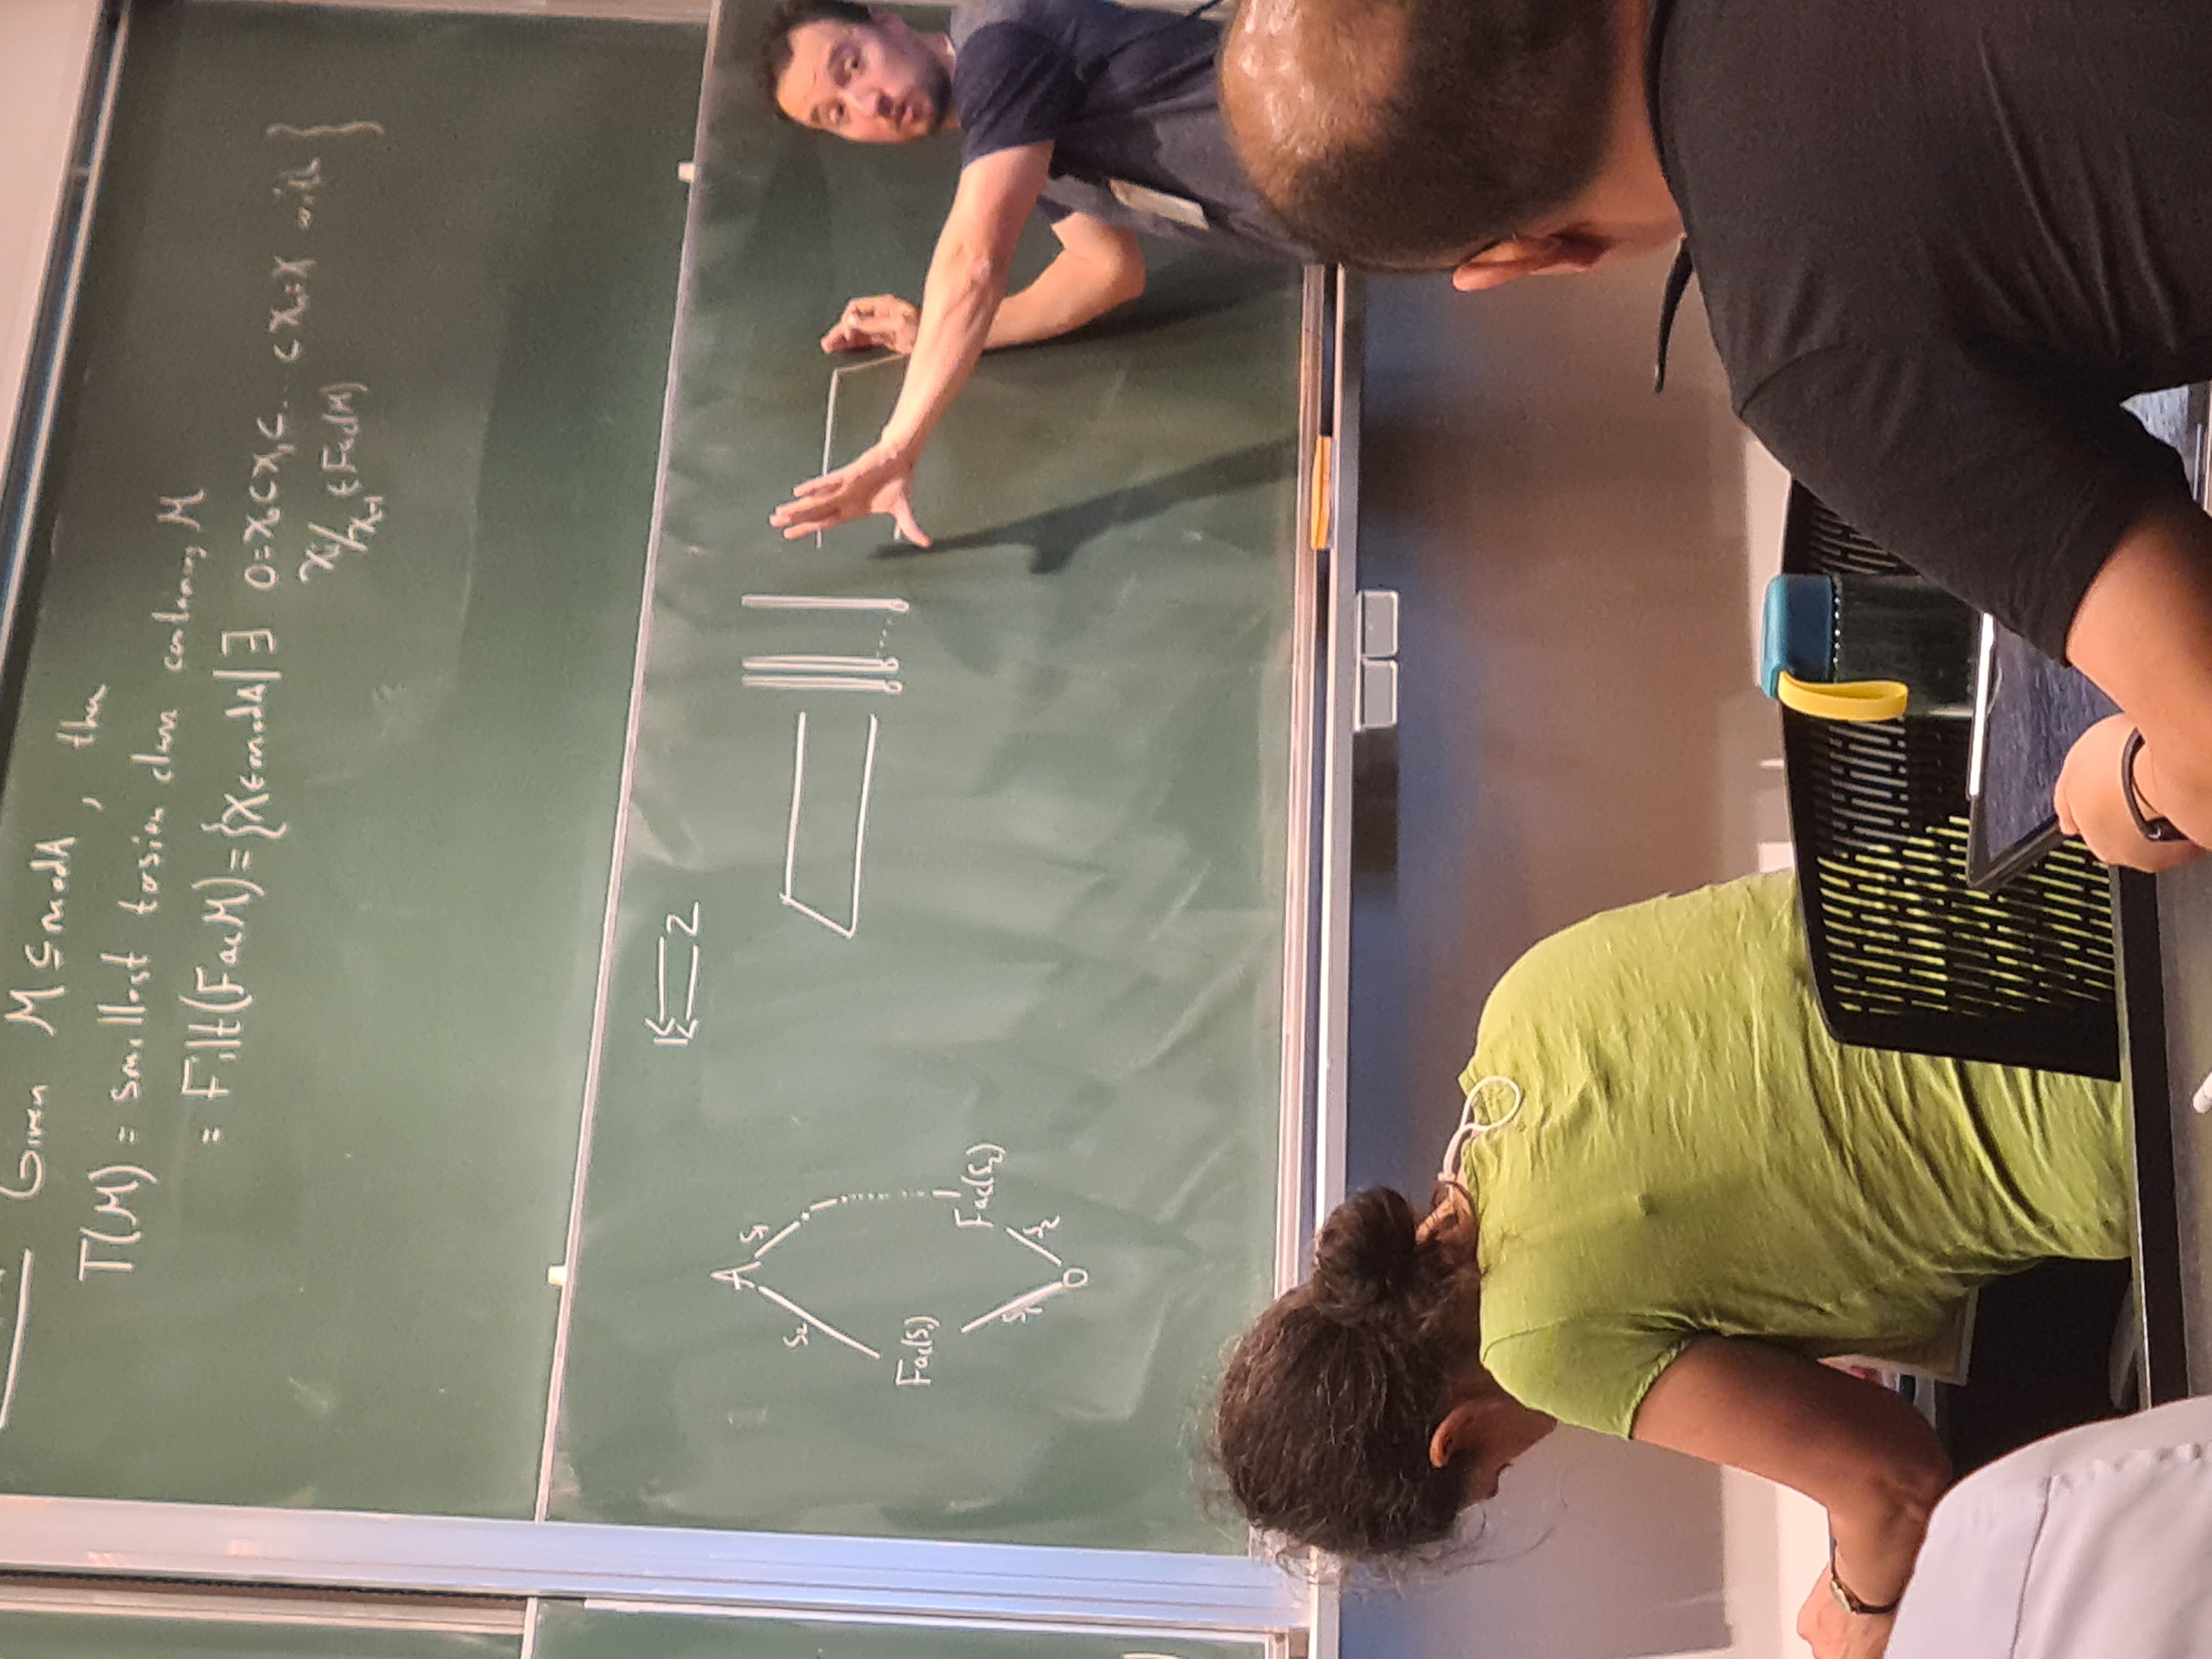 Given M ⊆ modA, then
T(M) = smallest torsion class containing M
= Filt(Fac M) = {X ∈ modA | ∃ 0=X₀ ⊂ X₁ ⊂ ... ⊂ Xₙ=X with }
Xᵢ/Xᵢ₋₁ ∈ Fac(M)
1 ⇇ 2
A
S₁
S₂
Fac(S₁)
Fac(S₂)
S₁
S₂
0